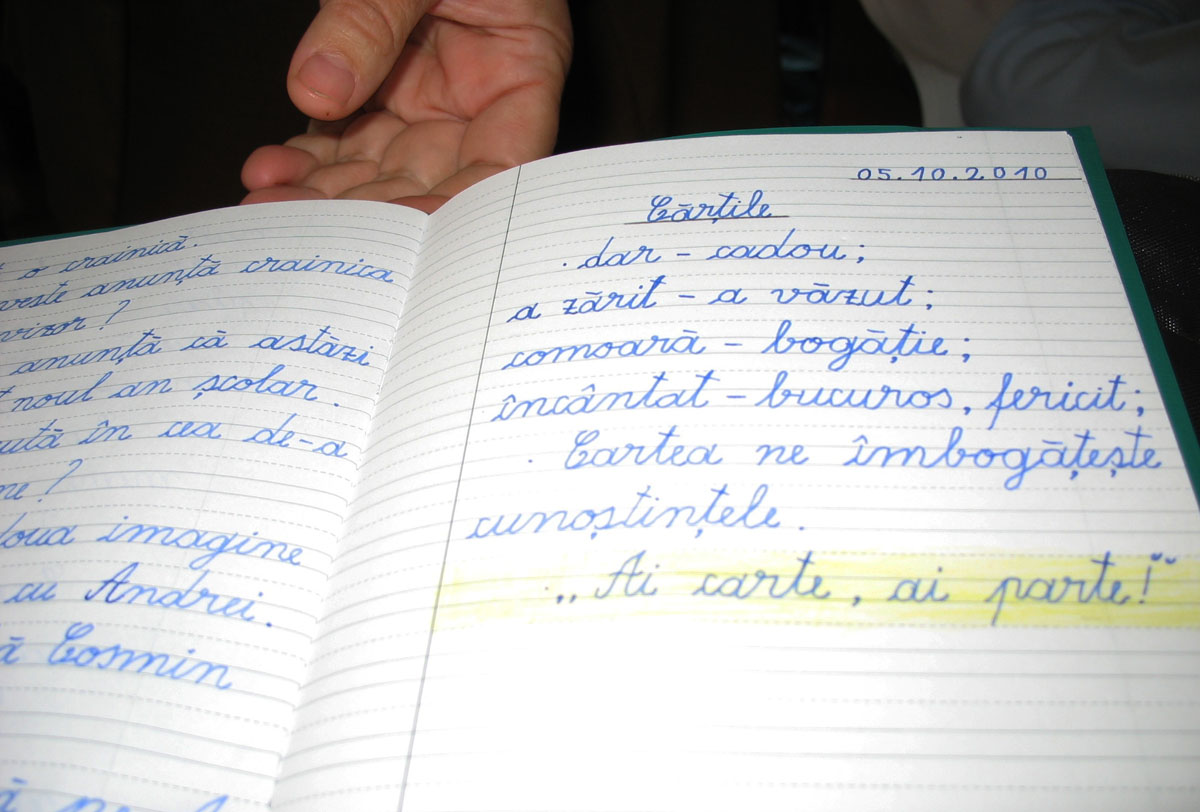 o crainică.
anunță crainica
anunță că astăzi
noul an școlar.
în cea de-a
imagine
cu Andrei.
Cosmin
05.10.2010
Cărțile
dar - cadou;
a zărit - a văzut;
comoară - bogăție;
încântat - bucuros, fericit;
Cartea ne îmbogățește
cunoștințele.
„Ai carte, ai parte!”